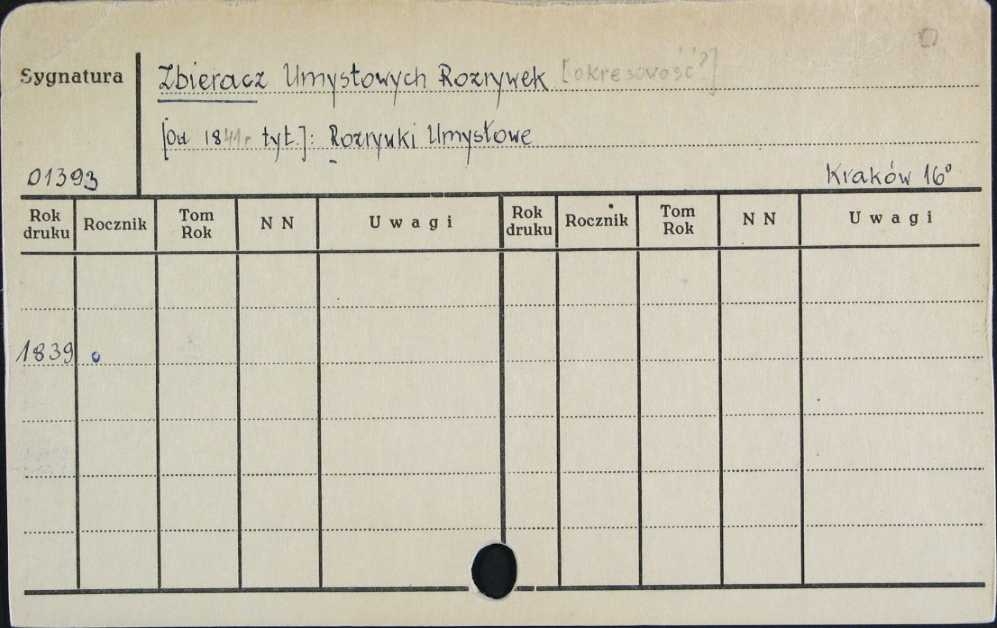 Sygnatura
Zbieracz Umysłowych Rozrywek [okresowość?]
[Od 1841r tyt.]: Rozrywki Umysłowe
01393
Kraków 16°
Rok druku Rocznik Tom Rok N N Uwagi Rok druku Rocznik Tom Rok N N Uwagi
1839 o